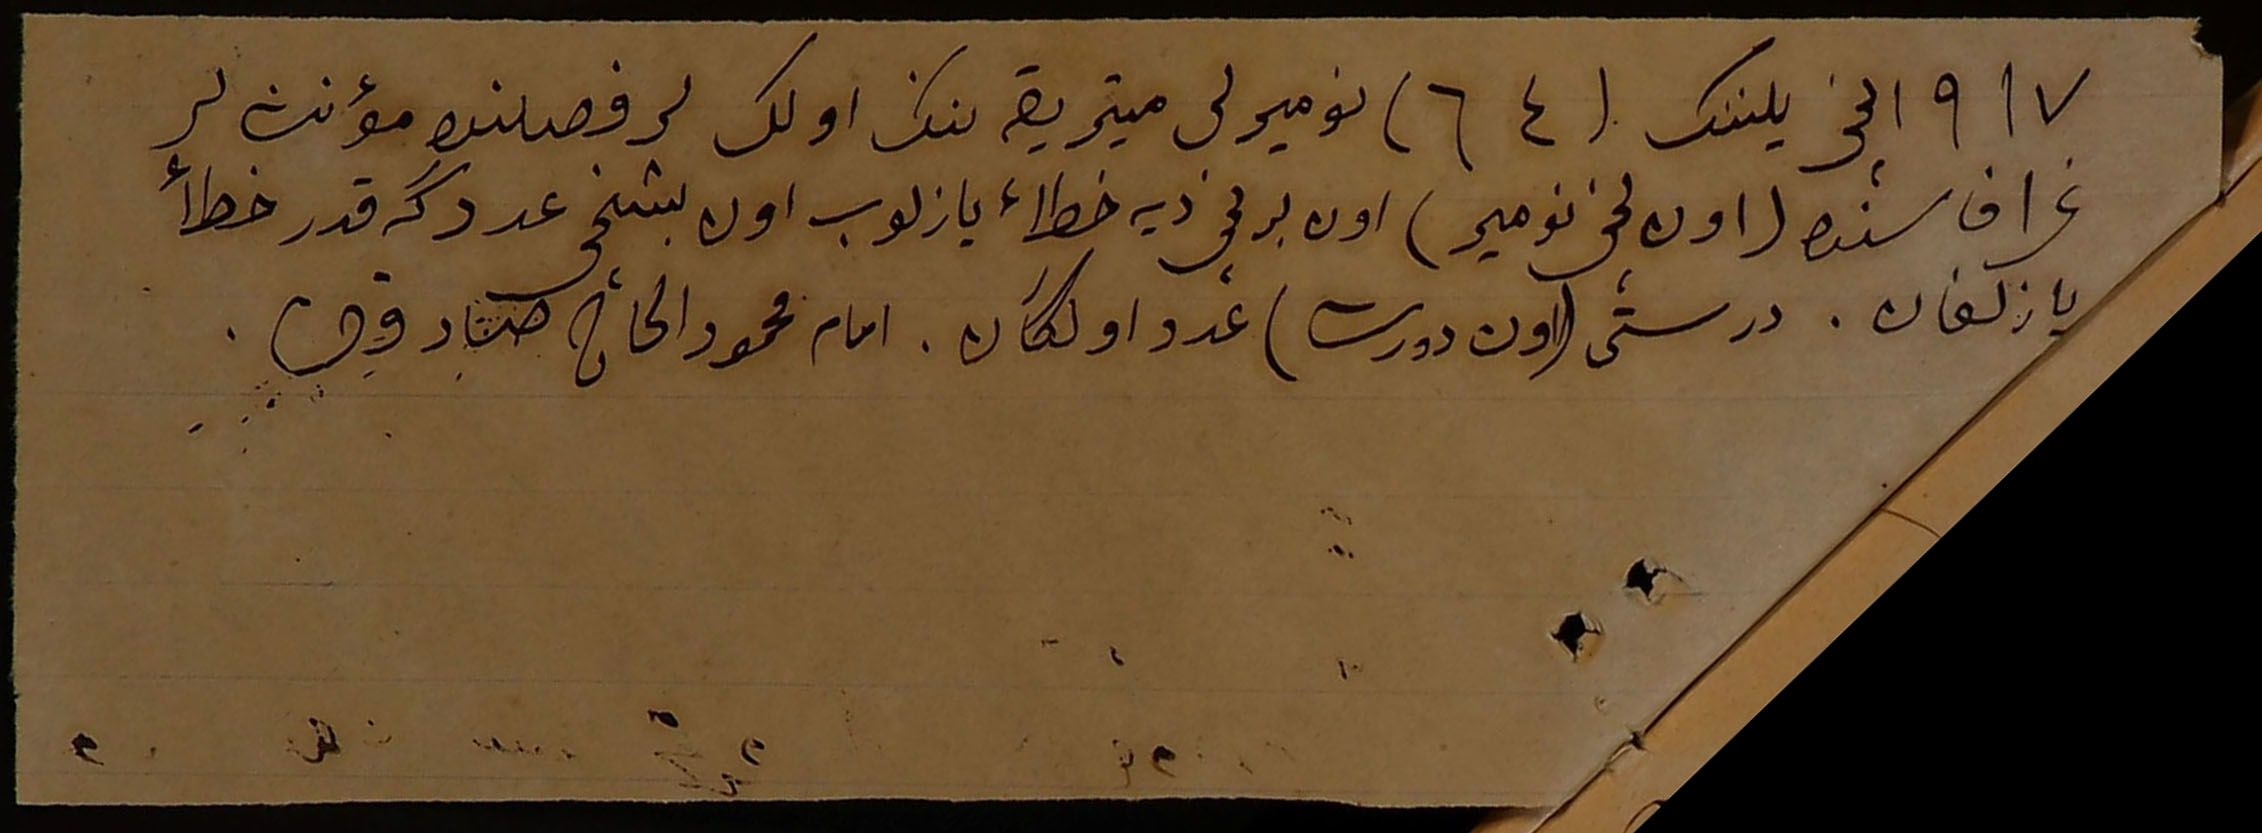 ٩١٧ ١نچی یلننک (٦٤) نومیرلی میتریقه ننک اولک لر فصلنده مؤنث لر
غرافاسنده (اون نچی نومیر) اون برنچی دیه خطاء یازلوب اون بشنچی عددگه قدر خطأ
یازلغان . درستی (اون دورت) عدد اولگان . امام محمود الحاج صادقوف .